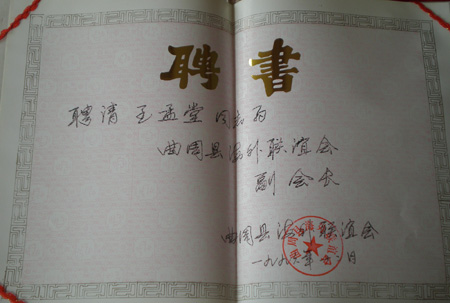 聘書
聘请 王孟堂 同志为
曲周县海外联谊会
副会长
曲周县海外联谊会
一九九 年 日